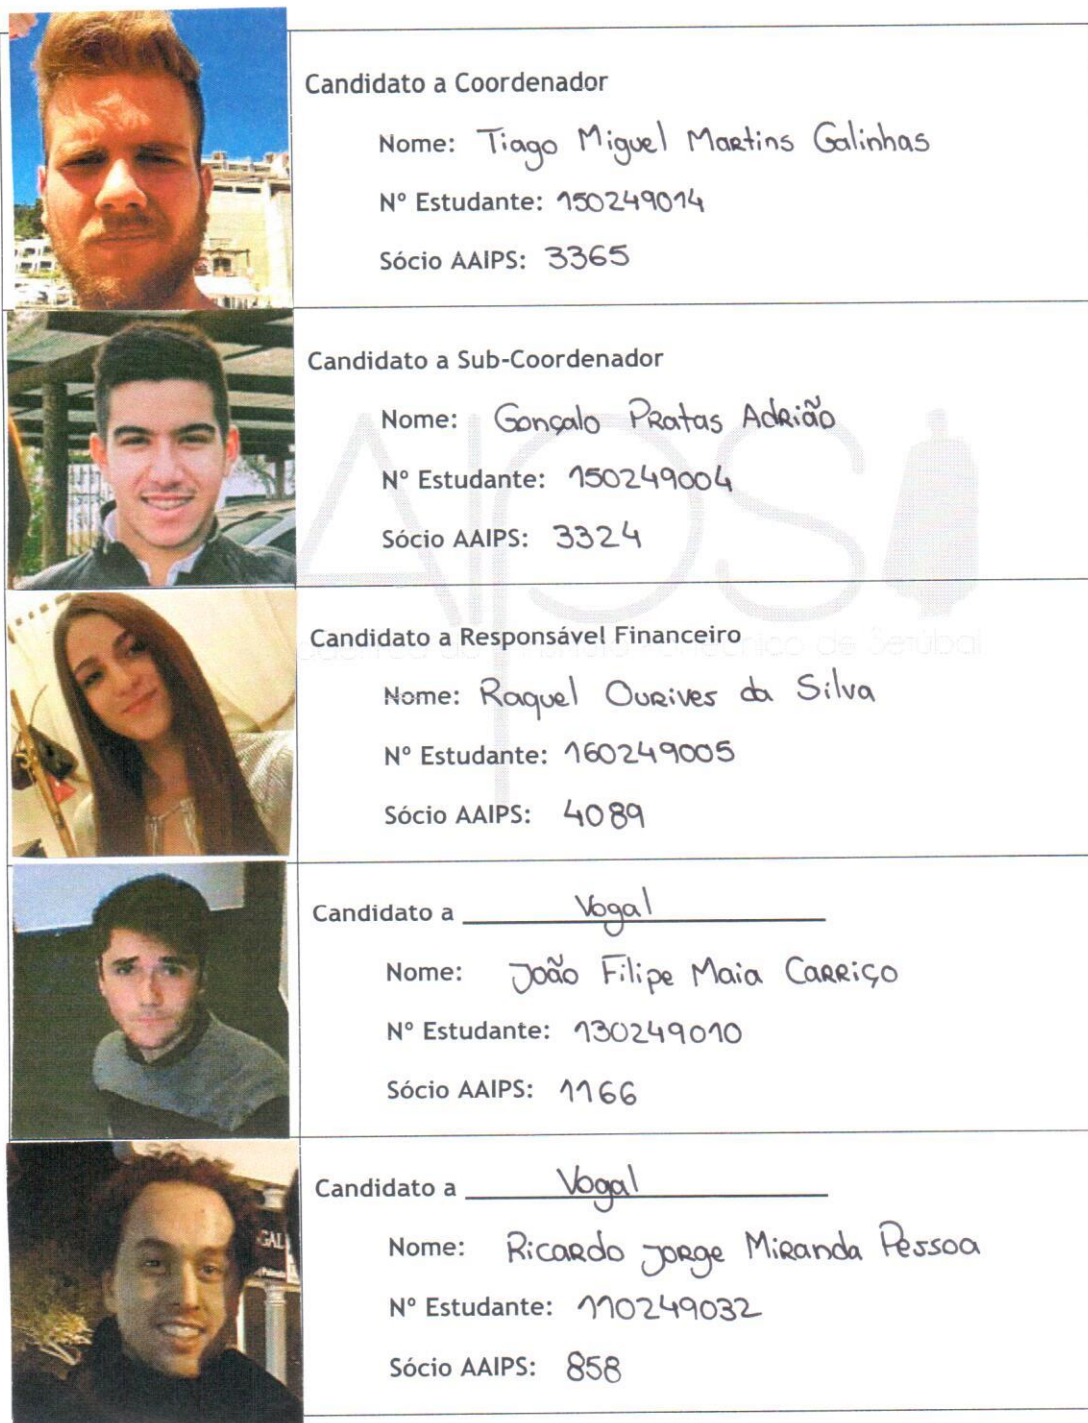 Candidato a Coordenador
Nome: Tiago Miguel Martins Galinhas
Nº Estudante: 150249014
Sócio AAIPS: 3365
Candidato a Sub-Coordenador
Nome: Gonçalo Pratas Adrião
Nº Estudante: 150249004
Sócio AAIPS: 3324
AIPS
Candidato a Responsável Financeiro
de Setúbal
Nome: Raquel Ourives da Silva
Nº Estudante: 160249005
Sócio AAIPS: 4089
Candidato a Vogal
Nome: João Filipe Maia Carriço
Nº Estudante: 130249010
Sócio AAIPS: 1166
Candidato a Vogal
GAL
Nome: Ricardo Jorge Miranda Pessoa
Nº Estudante: 110249032
Sócio AAIPS: 858